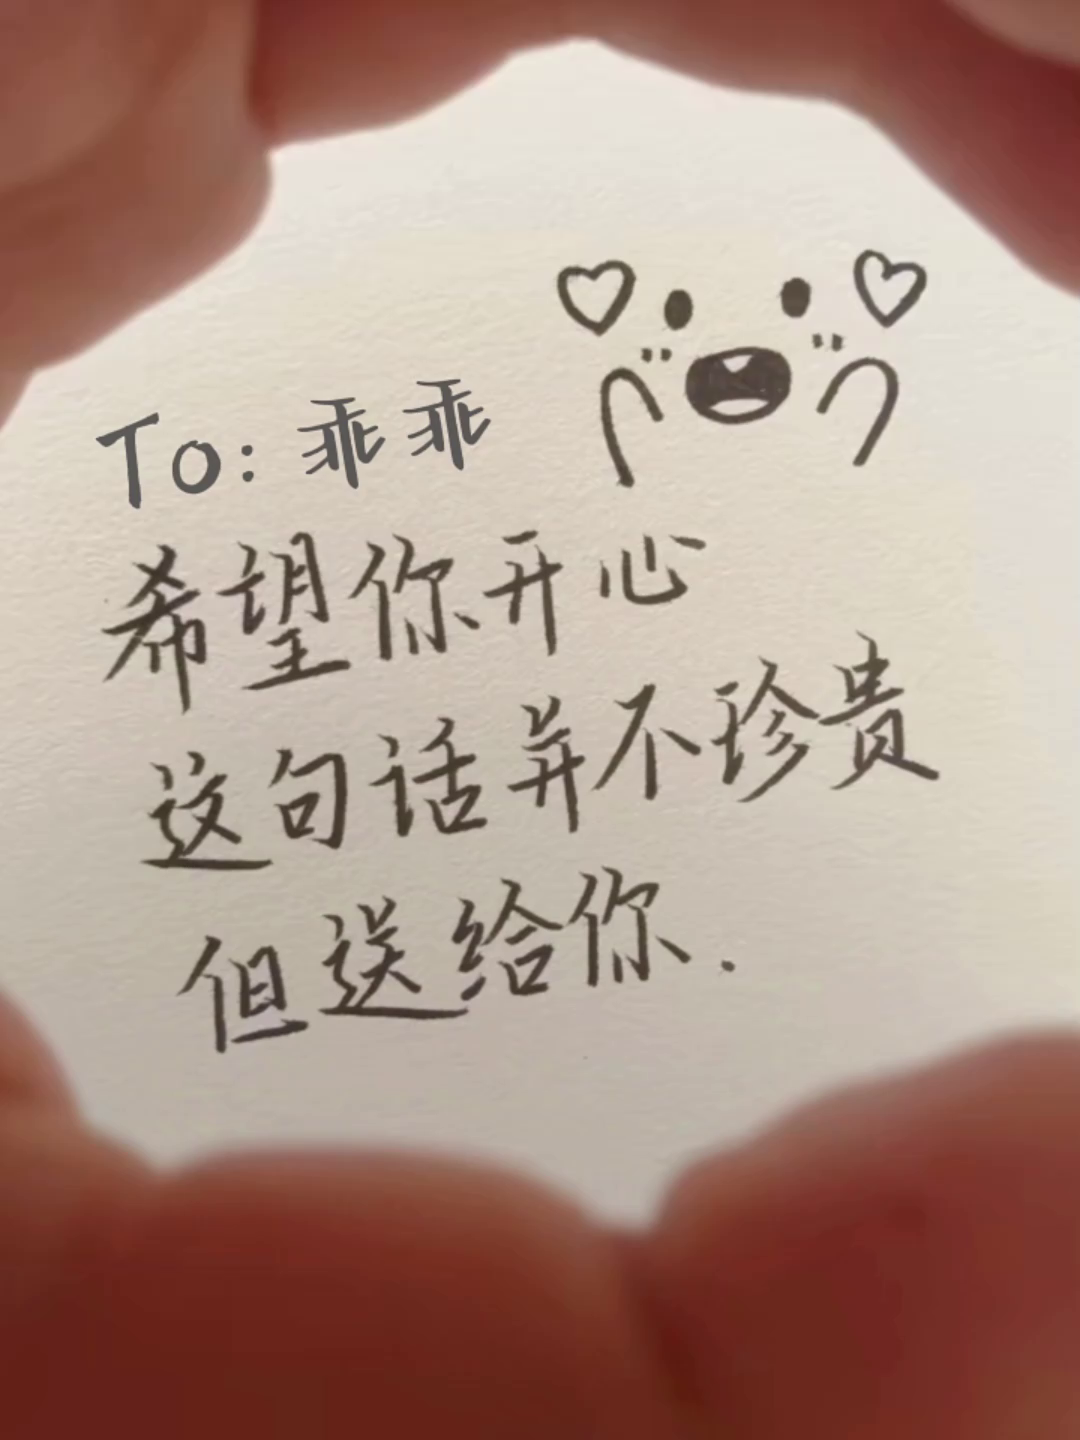 To: 乖乖
希望你开心
这句话并不珍贵
但送给你.